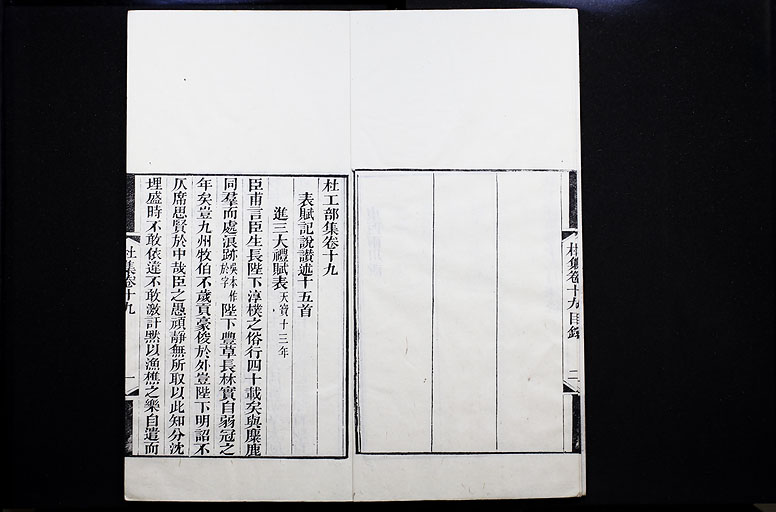 杜集卷十九目錄 二
杜工部集卷十九
表賦記說讚述十五首
進三大禮賦表天寶十三年
臣甫言臣生長陛下淳樸之俗行四十載矣與麋鹿
同羣而處浪跡吳本作於字陛下豐草長林實自弱冠之
年矣豈九州牧伯不歲貢豪俊於外豈陛下明詔不
仄席思賢於中哉臣之愚頑靜無所取以此知分沈
埋盛時不敢依違不敢激訐默以漁樵之樂自遣而
杜集卷十九 一